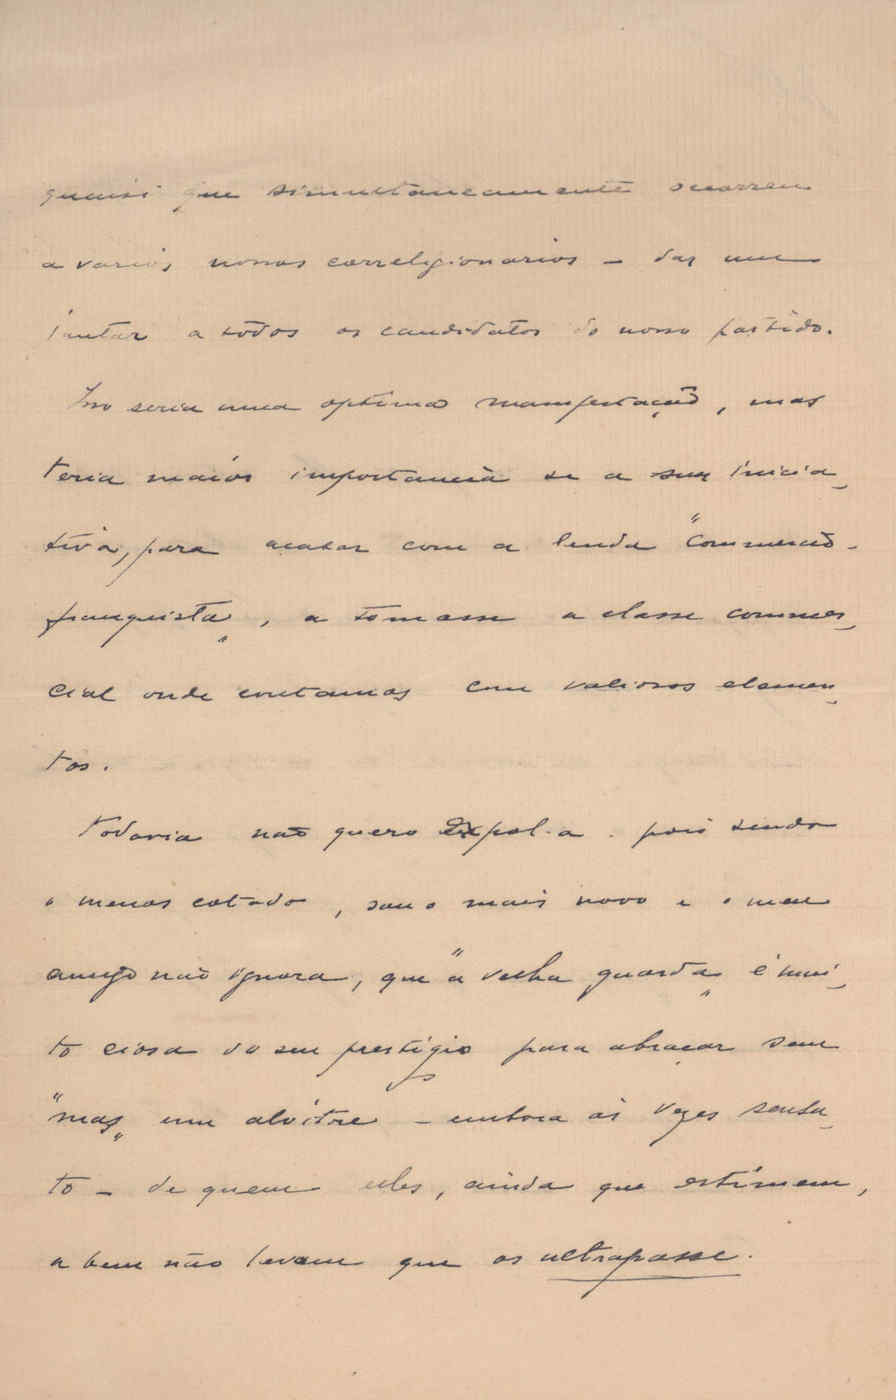 quaisi que simultaneamente ocorreu
a varios nossos correligionarios – dar um
jantar a todos os candidatos do nosso partido.
Isso seria uma optima manifestação, mas
teria maior importancia se a sua inicia-
tiva, para acabar com a lenda "commercio-
franquista", a tomasse a classe commer-
cial onde contamos com valiosos elemen-
tos.
Todavia não quero expol-a. pois sendo
o menos cotado, sou o mais novo e o meu
amigo não ignora, que "a velha guarda" é mui-
to ciosa do seu prestigio para abraçar sem
"mas" um alvitre – embora ás vezes sensa-
to – de quem eles, ainda que estimem,
a bem não levam que os ultrapasse.